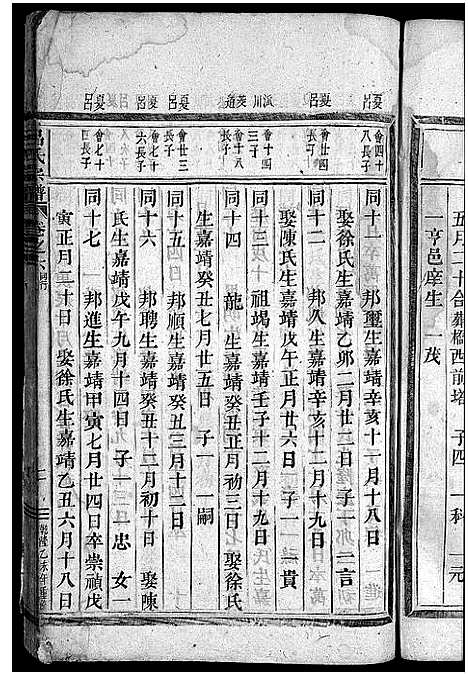 五月二十合葬檔西前塝 子四 一科 一元
一亨邑庠生 一茂
夏
呂
會四十
八長子
同十一 邦璽生嘉靖辛亥十一月十八日
娶徐氏生嘉靖乙卯二月廿二日 子一 二言
夏
呂
會廿四
長子
同十二 邦久生嘉靖辛亥十二月十九日
娶陳氏生嘉靖戊午正月廿六日 子一 一貴
派
川
會十四
三子
同十三 祖堨生嘉靖壬子十二月十九日
茭
道
會十八
子
同十四 龍 生嘉靖癸丑正月初三日娶徐氏
生嘉靖癸丑七月廿五日 子一 一嗣
夏
呂
會廿三
長子
同十五 邦順生嘉靖癸丑三月十二日
夏
呂
會七十
六長子
同十六 邦聘生嘉靖癸丑十二月初十日 娶陳
氏生嘉靖戊午九月十四日 子一 一忠 女一
夏
呂
會七十
七長子
同十七 邦進生嘉靖甲寅七月廿四日卒崇禎戊
寅正月二十日 娶徐氏生嘉靖乙丑六月十八日
呂氏宗譜